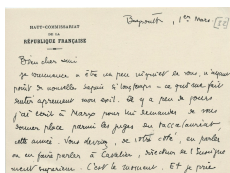 HAUT-COMMISSARIAT
DE LA
RÉPUBLIQUE FRANÇAISE
Beyrouth, 1er Mars
Bien cher ami
Je commence à être un peu inquiet de vous, n'ayant
point de nouvelles depuis si longtemps – ce qui me fait
votre
Il y a peu de jours
j'ai écrit à Marx pour lui demander de vous
donner place parmi les juges du baccalauréat
cette année. Vous devriez, de votre côté, en parler
ou en faire parler à Cavalier, directeur de l'Enseigne
ment supérieur. C'est le moment. Et je